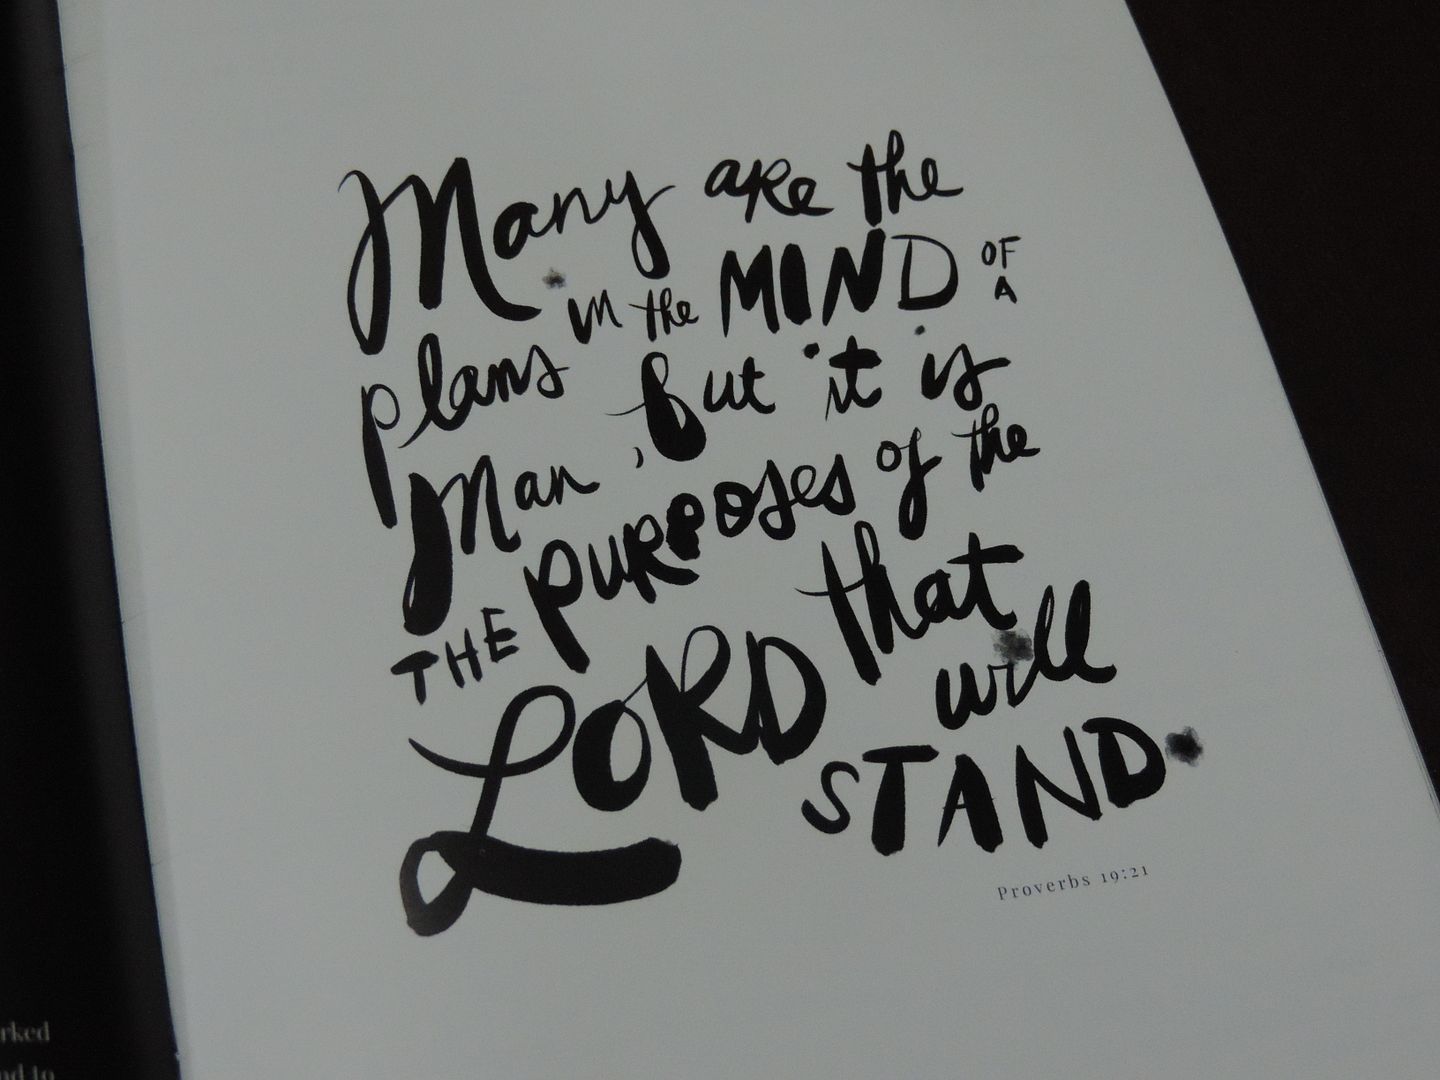 Many are the
plans in the MIND OF A
Man, but it is
THE PURPOSES of the
LORD that
will
STAND.
Proverbs 19:21
rked
nd to